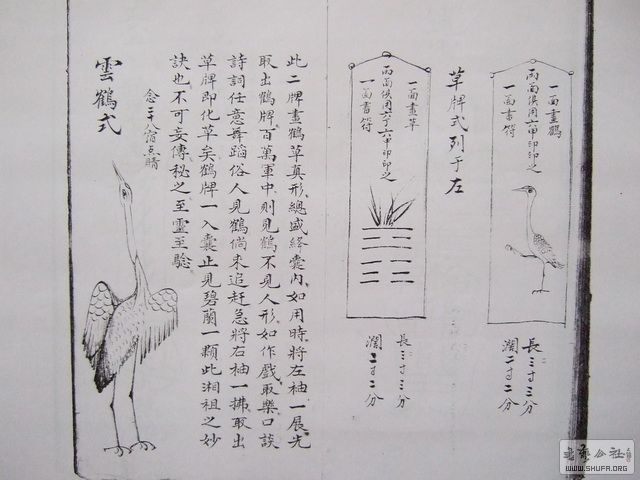 一面畫鶴
兩面俱用六甲印印之
一面書符
長三寸三分
濶二寸二分
草牌式列于左
一面畫草
兩面俱用六丁六甲印印之
一面書符
長三寸三分
濶二寸二分
此二牌畫鶴草真形總盛絳囊內如用時將左袖一展先
取出鶴牌百萬軍中則見鶴不見人形如作戲取樂口談
詩詞任意舞蹈俗人見鶴倘來追赶急將右袖一拂取出
草牌即化草矣鶴牌一入囊止見碧蘭一顆此湘祖之妙
訣也不可妄傳秘之至靈至驗
雲鶴式
念二十八宿点睛
公社
WWW.SHUFA.ORG